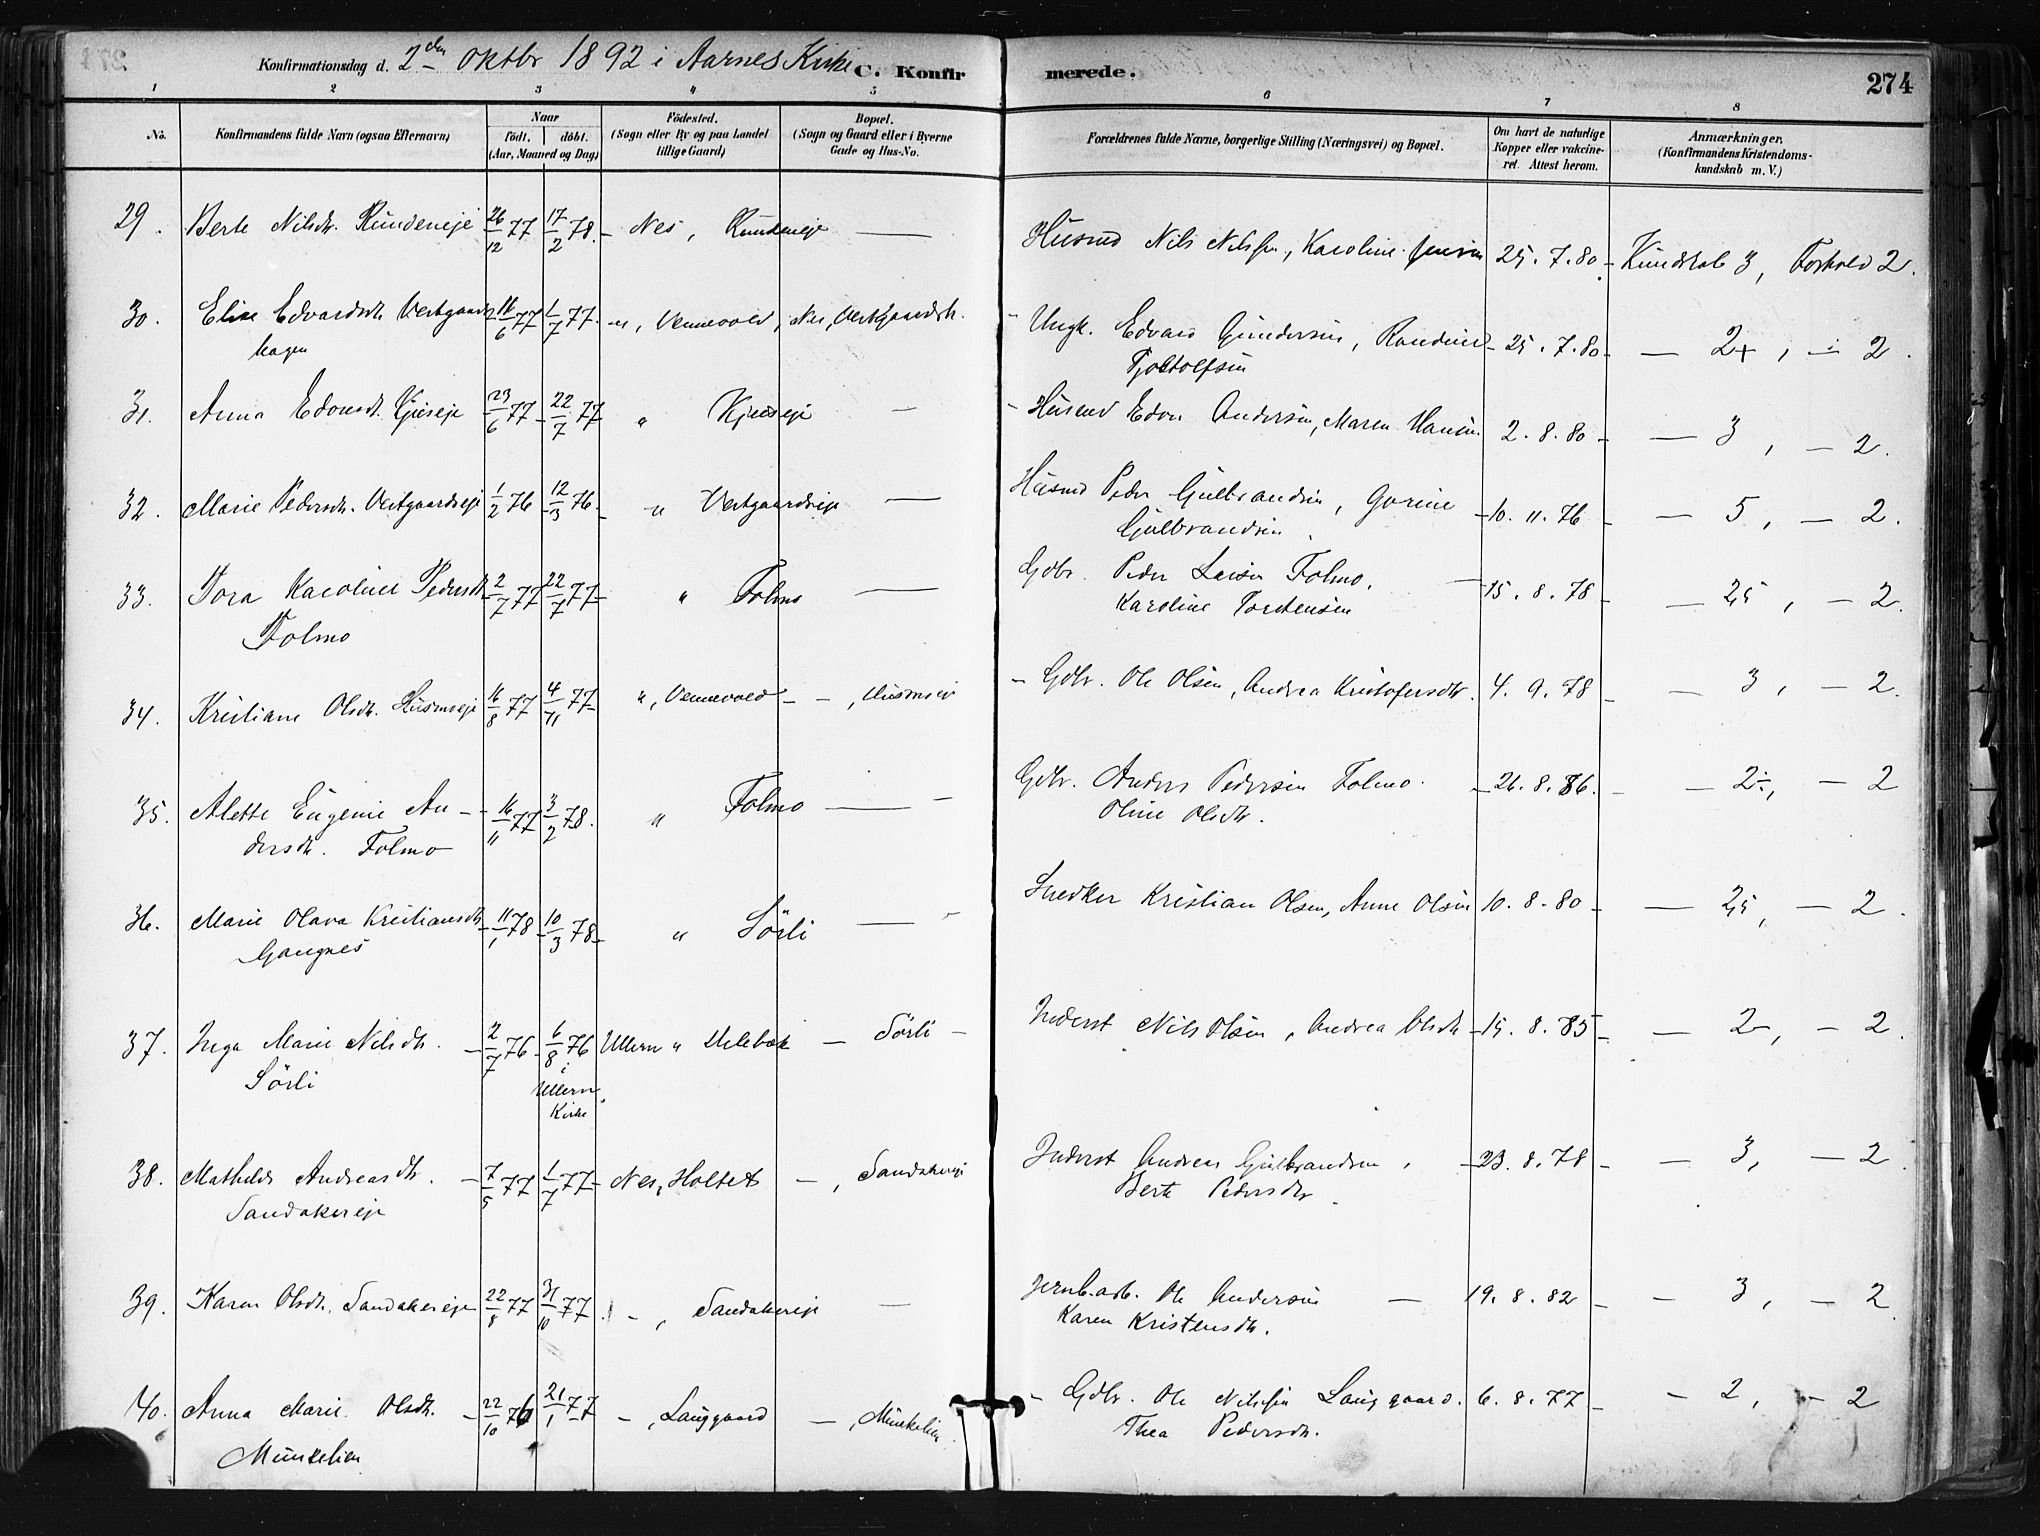 Konfirmationsdag d. 2den Oktbr 1892 i Aarnes Kirke C. Konfir merede. 274
1 2 3 4 5 6 7 8
No. Konfirmandens fulde Navn (ogsaa Efternavn) Naar født. døbt. (Aar, Maaned og Dag) Fødested. (Sogn eller By og paa Landet tillige Gaard) Bopæl. (Sogn og Gaard eller i Byerne Gade og Hus-No. Forældrenes fulde Navne, borgerlige Stilling (Næringsvei) og Bopæl. Om havt de naturlige Kopper eller vakcineret. Attest herom. Anmærkninger, (Konfirmandens Kristendomskundskab m. V.)
29. Berte Nilsdtr. Rundeneje 26/12 77 17/2 78. Nes, Rundeneje — Husmd Nils Nilssen, Karoline Jensen 25.7.80 Kundskab 3, Forhold 2.
30. Elise Edvardsdtr Vestgaards 16/6 77 1/7 77. — " , Vennevold, Nes, Vestgaardsh. Ungk. Edvard Gundersen, Randine 25.7.80 — 2+, — 2.
hagen Tjostolfsen
31. Anna Edvardsdt. Kjuseje 23/6 77 22/7 77 " Kjuseje — Husmd Edvar Andersen, Maren Hansen 2.8.80 — 3, — 2.
32. Marie Pedersdtr. Vestgaardseje 1/2 76 12/3 76. " Vestgaardseje — Husmd Peder Gulbrandsen, Gorine 10.11.76 — 5, — 2.
Gulbrandsen
33. Tora Karoline Pedersdtr 2/7 77 22/7 77 " Folmo — Gdbr. Peder Larsen Folmo. — 15.8.78 — 2,5, — 2.
Folmo Karoline Torstensen
34. Kristiane Olsdtr. Husmoeje 16/8 77 4/11 77 ", Vennevold — —, Husmoeje Gdbr. Ole Olsen, Andrea Kristofersdtr. 4.9.78 — 3, — 2.
35. Alette Eugenie An- 16/11 77 3/2 78. " Folmo — Gdbr. Anders Pedersen Folmo. 26.8.86. — 2÷, — 2
dersdtr. Folmo Oline Olsdtr.
36. Marie Olava Kristiansdtr 11/1 78 10/3 78 " Sörli — Snedker Kristian Olsen, Anne Olsen 10.8.80 — 2,5, — 2.
Gangnes
37. Inga Marie Nilsdtr. 2/7 76 6/8 76 Ullern " Melebæk — Sörli — Inderst Nils Olsen, Andrea Olsdtr 15.8.85 — 2, — 2.
Sörli i Ullern Kirke
38. Mathilde Andreasdtr. 7/5 77 1/7 77 Nes, Holtet —, Sandakereje Inderst Andreas Gulbrandsen, 23.8.78 — 3, — 2.
Sandakereje Berte Pedersdtr.
39. Karen Olsdtr. Sandakereje 22/8 77 31/10 77. —, Sandakereje — Jernb.arb. Ole Andersen — 19.8.82 — 3, — 2
Karen Kristensdtr.
40. Anna Marie Olsdtr. 22/10 76 21/1 77 —, Langgaard —, Munkelien. Gdbr. Ole Nilssen Langgaard. 6.8.77 — 2, — 2
Munkelien Thea Pedersdtr.